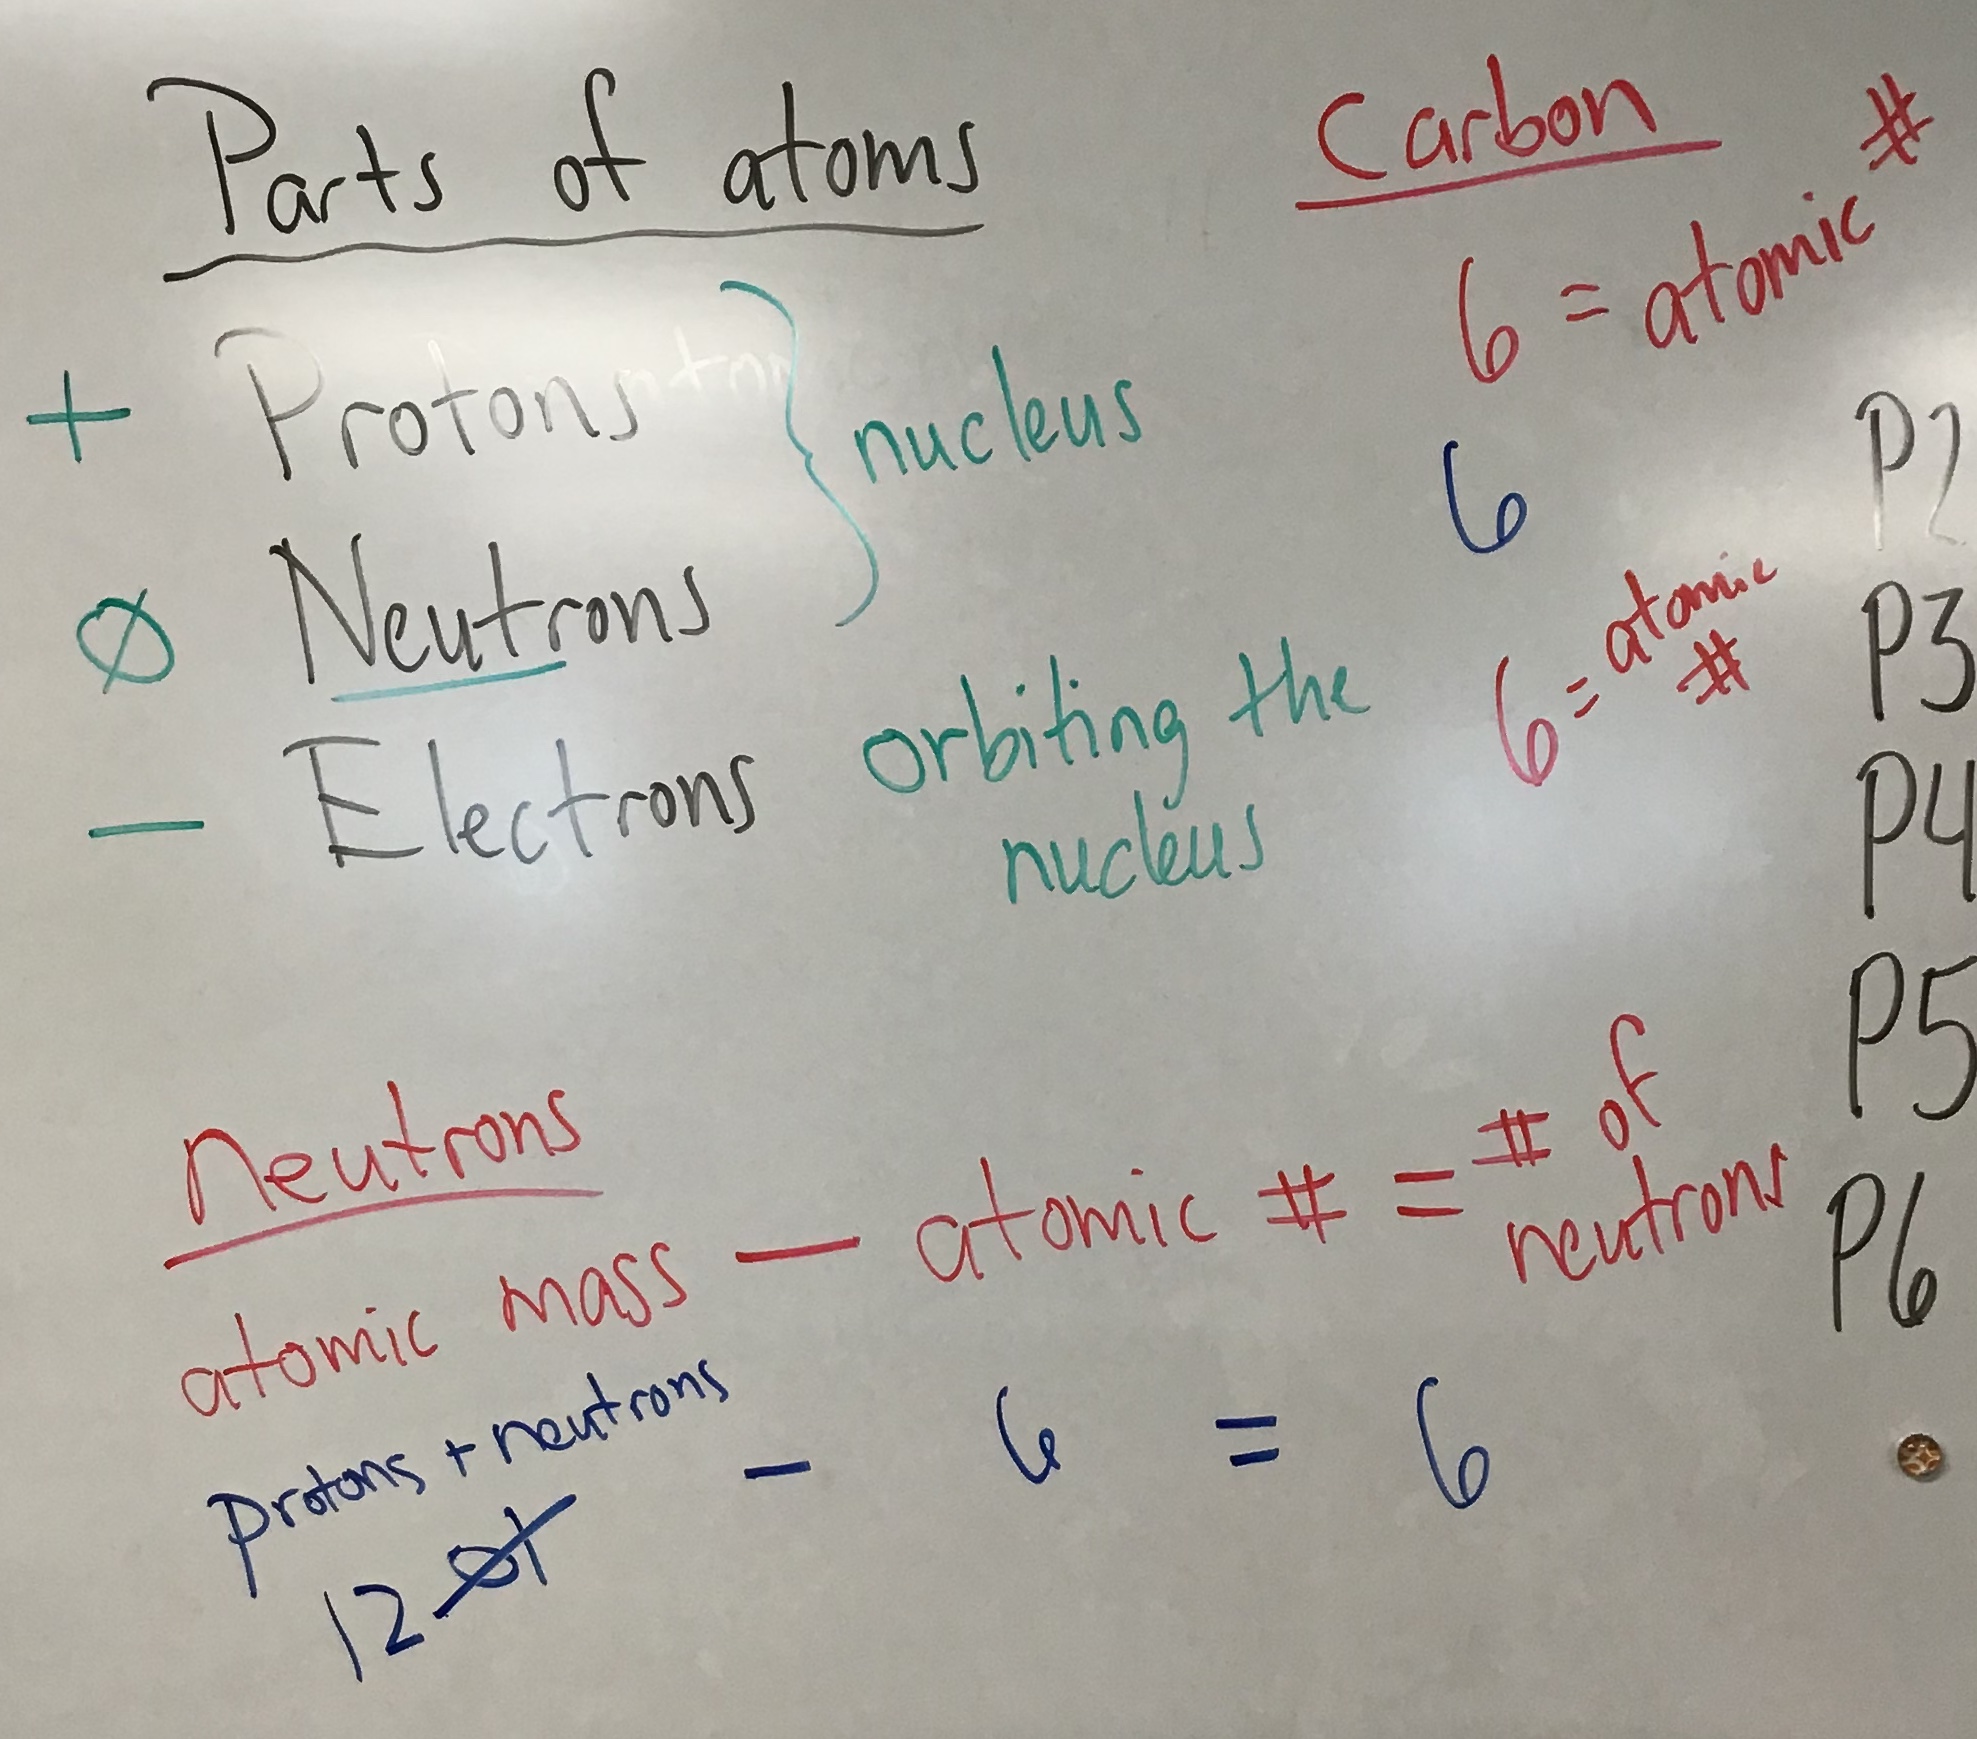 Parts of atoms
Carbon
+ Protons } nucleus
6 = atomic #
Ø Neutrons
6
- Electrons orbiting the
nucleus
6 = atomic
#
P2
P3
P4
P5
P6
Neutrons
atomic mass - atomic # = # of
neutrons
protons + neutrons
12 - 6 = 6